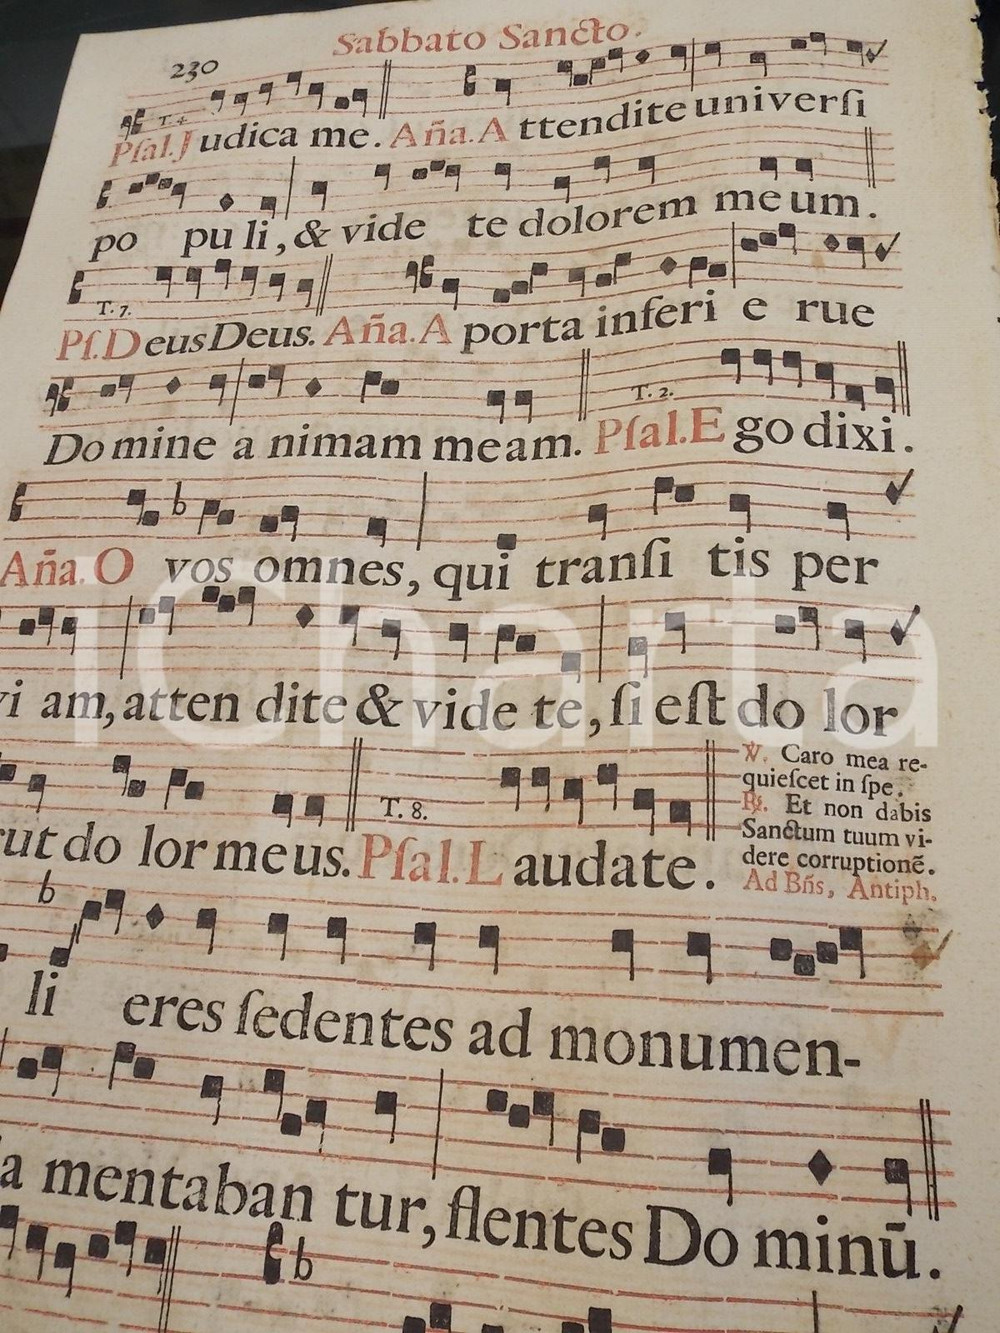 Sabbato Sancto.
230
T. 4
Pſal. J udica me. Aña. A ttendite univerſi
po pu li, & vide te dolorem me um.
T. 7.
Pſ. D eus Deus. Aña. A porta inferi e rue
Do mine a nimam meam. Pſal. E go dixi.
T. 2.
Aña. O vos omnes, qui tranſi tis per
vi am, atten dite & vide te, ſi eſt do lor
T. 8.
℣. Caro mea re-
quieſcet in ſpe.
℟. Et non dabis
Sanctum tuum vi-
dere corruptionē.
Ad Bñs, Antiph.
ut do lor me us. Pſal. L audate.
li eres ſedentes ad monumen-
a mentaban tur, flentes Do minū.
iCharta